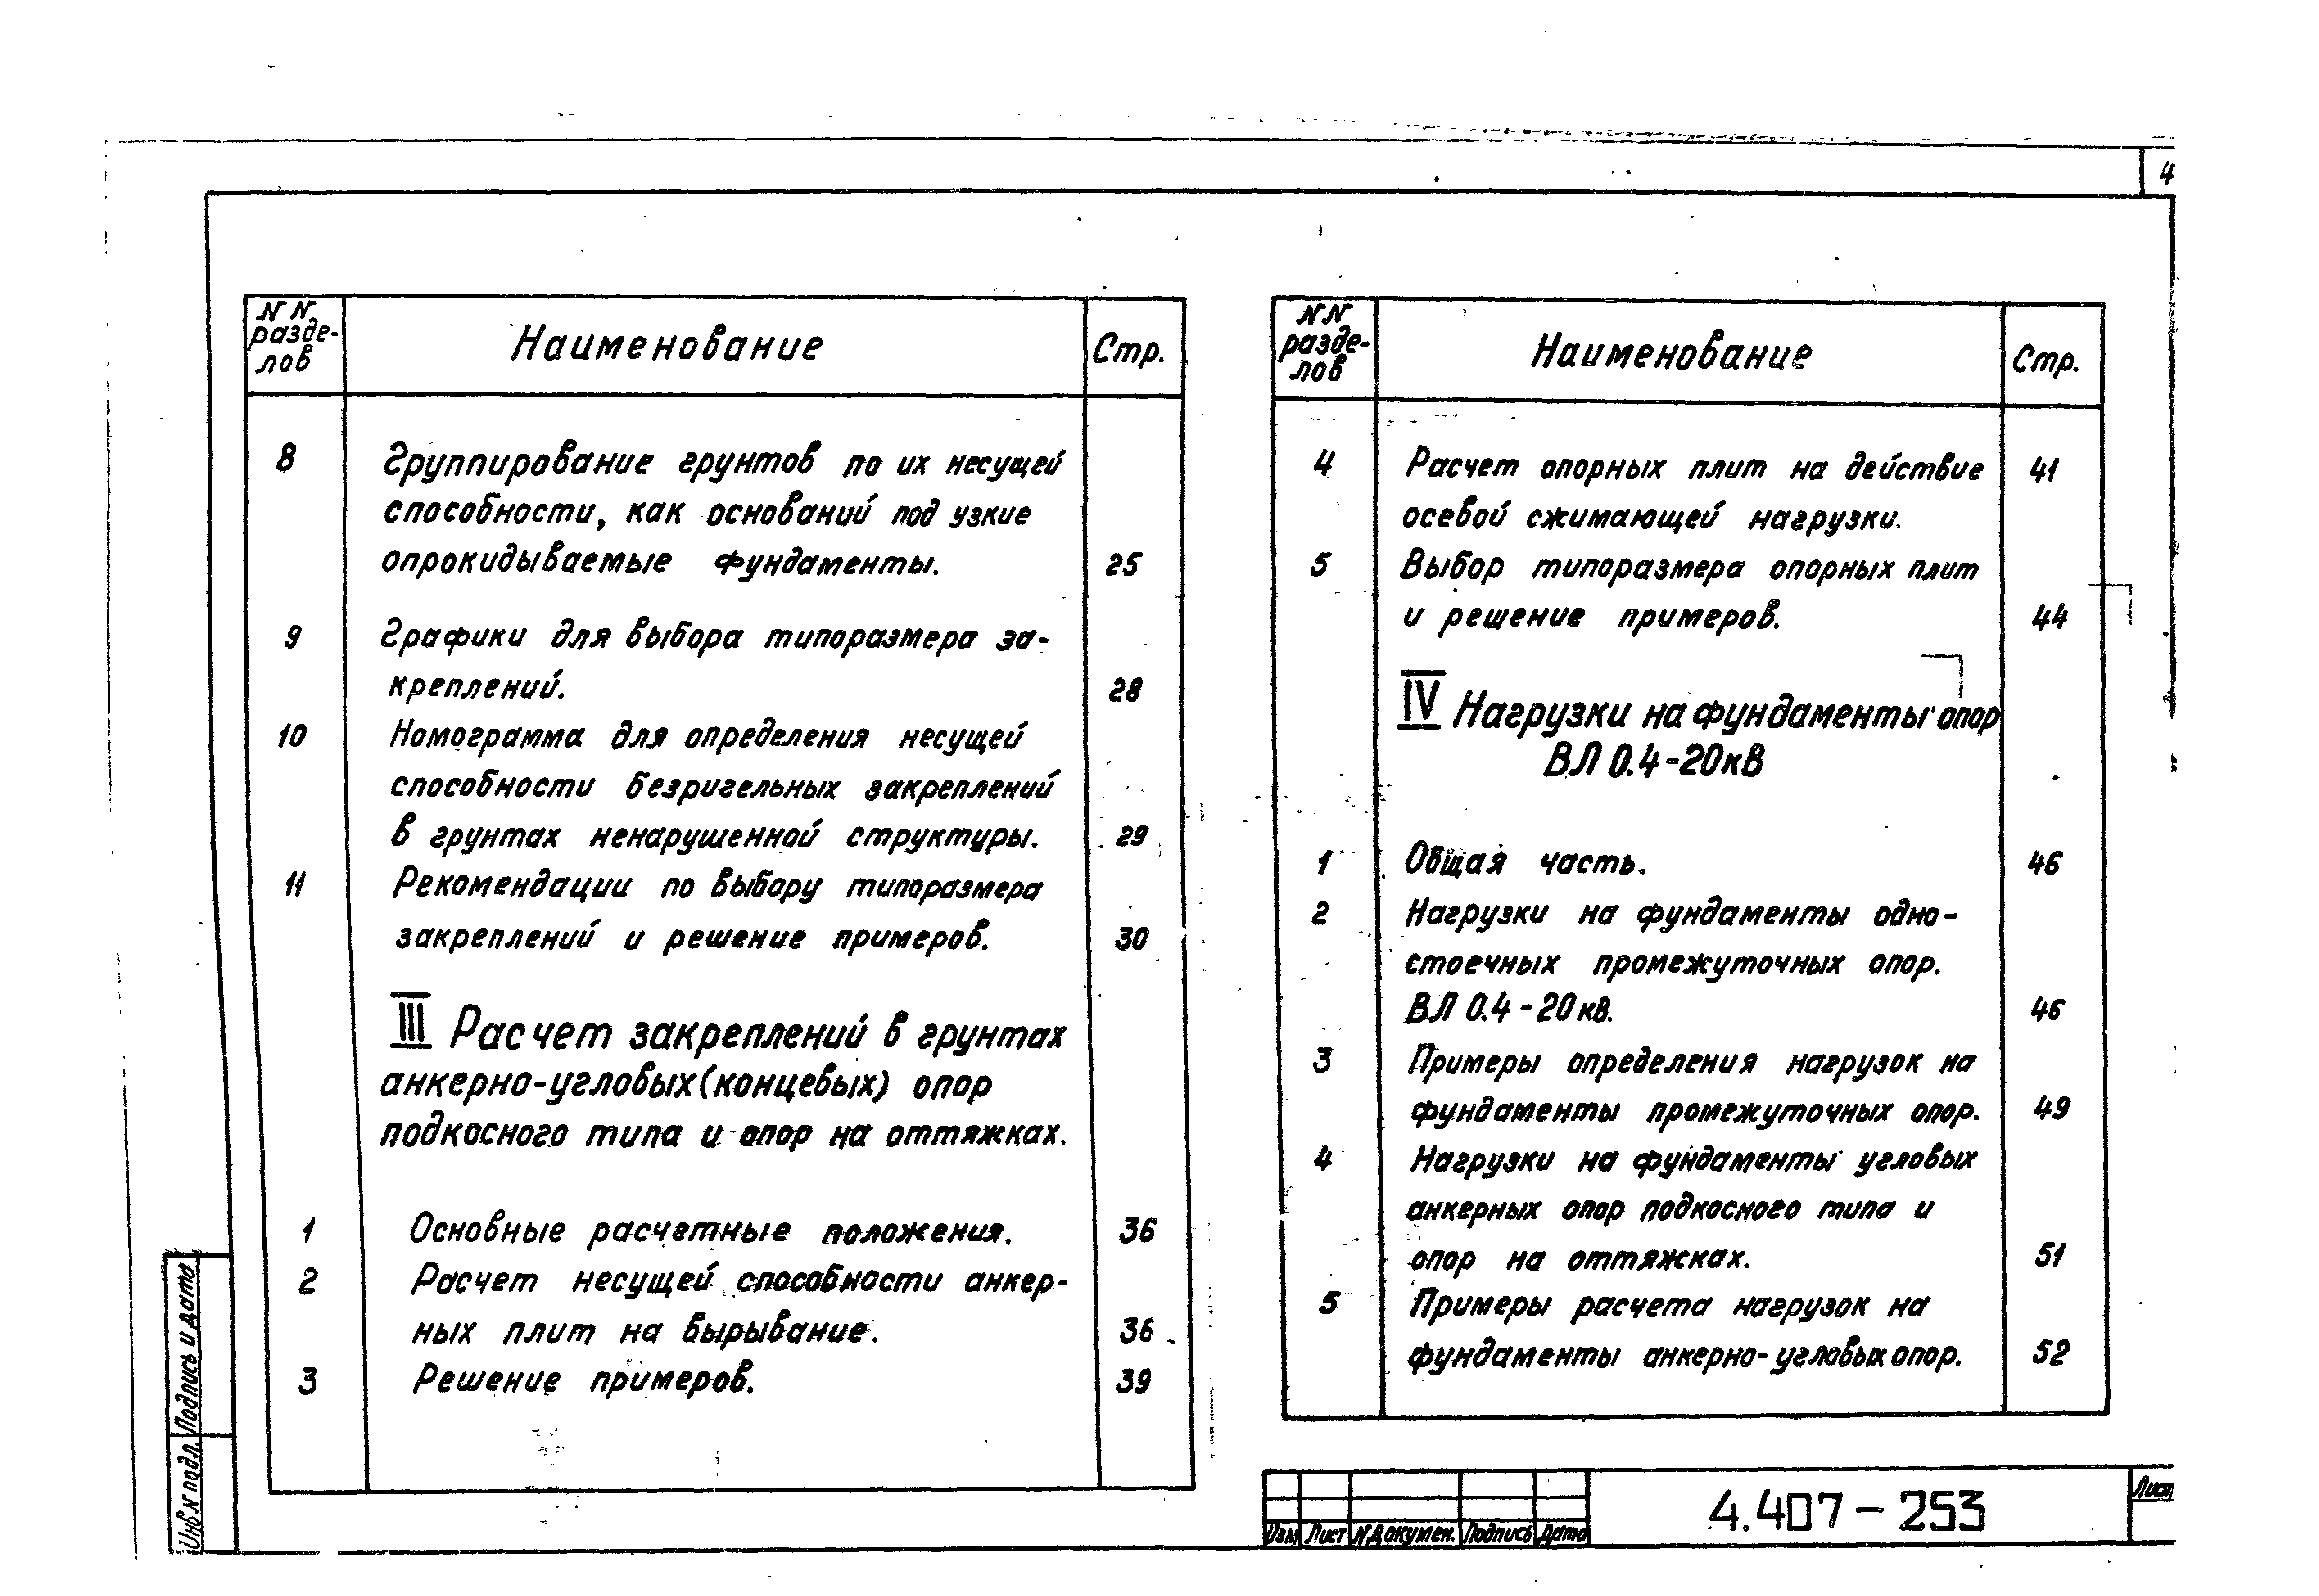 4
N N
разде-
лов
Наименование
Стр.
8
Группирование грунтов по их несущей
способности, как оснований под узкие
опрокидываемые фундаменты.
25
9
Графики для выбора типоразмера за-
креплений.
28
10
Номограмма для определения несущей
способности безригельных закреплений
в грунтах ненарушенной структуры.
29
11
Рекомендации по выбору типоразмера
закреплений и решение примеров.
30
III Расчет закреплений в грунтах
анкерно-угловых (концевых) опор
подкосного типа и опор на оттяжках.
1
Основные расчетные положения.
36
2
Расчет несущей способности анкер-
ных плит на вырывание.
36
3
Решение примеров.
39
N N
разде-
лов
Наименование
Стр.
4
Расчет опорных плит на действие
41
осевой сжимающей нагрузки.
5
Выбор типоразмера опорных плит
и решение примеров.
44
IV Нагрузки на фундаменты опор
ВЛ 0.4-20кВ
1
Общая часть.
46
2
Нагрузки на фундаменты одно-
стоечных промежуточных опор.
ВЛ 0.4-20кв.
46
3
Примеры определения нагрузок на
фундаменты промежуточных опор.
49
4
Нагрузки на фундаменты угловых
анкерных опор подкосного типа и
опор на оттяжках.
51
5
Примеры расчета нагрузок на
фундаменты анкерно-угловых опор.
52
Инв N подл.
Подпись и дата
Изм
Лист
N Докумен.
Подпись
Дата
4.407-253
Лист